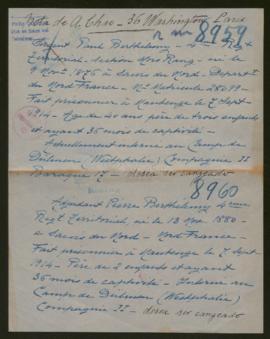 Nota de A. Chao - 36 Washington Paris
8959
Sergent Paul Berthelemy - 4 Regt
Territorial - né le
9 Nov. 1875 à du Nord - Départ
du Nord France - N° Matricule
Fait prisonnier à Maubeuge le 7 Sept
1914 - Age de ans père de trois enfants
et ayant 36 mois de captivité -
Actuellement interné au Camp de
Dülmen (Westphalie) Compagnie II
Baraque 17 - desea ser canjeado
8960
Adjudant Pierre Berthelemy 4ème
Regt Territorial, né le 13 Nov. 1880 -
à du Nord - Nord France -
Fait prisonnier à Maubeuge le 7 Sept
1914 - Père de 2 enfants et ayant
36 mois de captivité - Interné au
Camp de Dülmen (Westphalie)
Compagnie II - desea ser canjeado